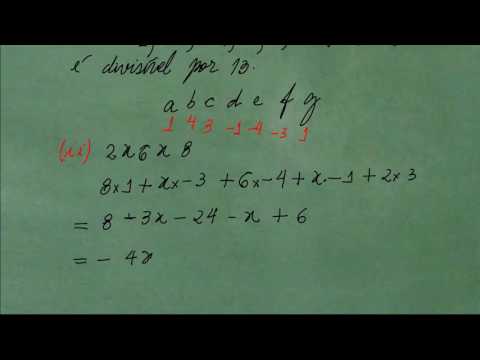 é divisível por 13.
a b c d e f g
1 4 3 -1 -4 -3 1
(xi) 2x6x8
8×1 + x×-3 + 6×-4 + x·-1 + 2×3
= 8 - 3x - 24 - x + 6
= - 4x